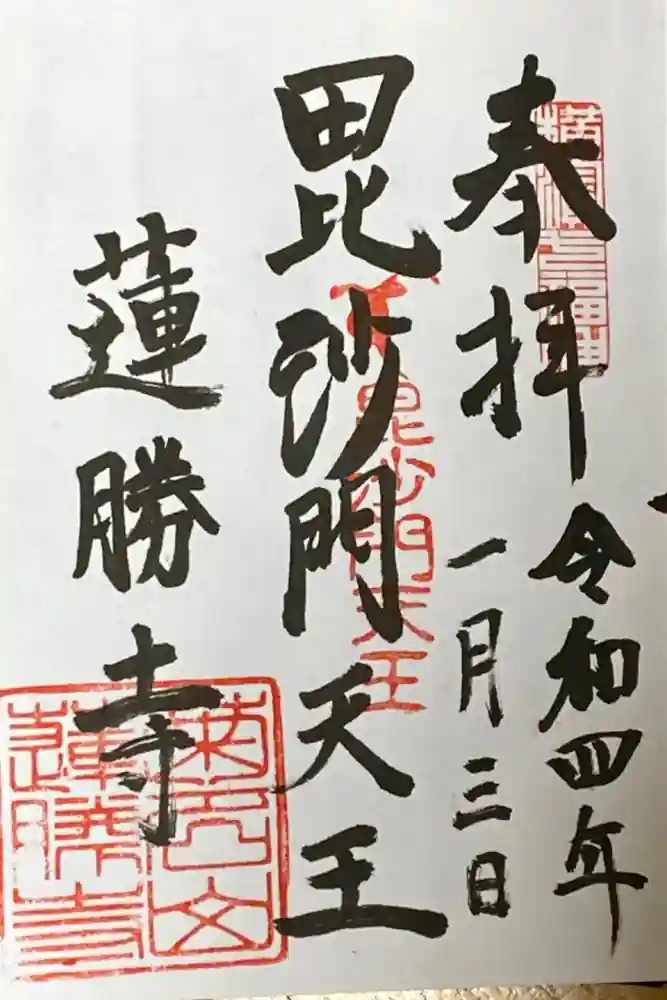 奉拝
令和四年
一月三日
毘沙門天王
毘沙門天王
蓮勝寺
蓮勝寺